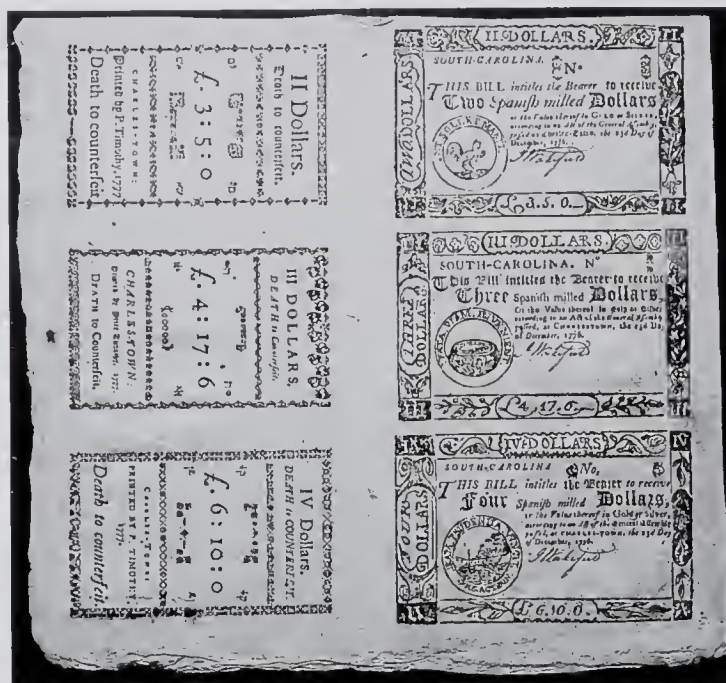 II Dollars.
Death to counterfeit.
£. 3 : 5 : 0
CHARLES-TOWN:
Printed by P. Timothy, 1777
Death to counterfeit
III DOLLARS.
DEATH to Counterfeit.
£. 4 : 17 : 6
CHARLESTOWN:
1777.
DEATH to Counterfeit
IV Dollars.
DEATH to COUNTERFEIT.
£. 6 : 10 : 0
PRINTED BY P. TIMOTHY,
1777.
Death to counterfeit
II DOLLARS.
II
TWO DOLLARS
SOUTH-CAROLINA. No
THIS BILL intitles the Bearer to receive
Two Spanish milled Dollars
or the Value thereof in GOLD or SILVER,
according to an Act of the General Assembly,
passed at CHARLES-TOWN, the 23d Day of
December, 1776.
£. 3. 5. 0.
III DOLLARS.
III
THREE DOLLARS
SOUTH-CAROLINA. No
This Bill intitles the Bearer to receive
Three Spanish milled Dollars,
Or the Value thereof in Gold or Silver
according to an Act of the General Assembly
passed, at CHARLESTOWN, the 23d Day
of December, 1776.
III
£. 4. 17. 6.
IV DOLLARS
IV
FOUR DOLLARS
SOUTH-CAROLINA No.
THIS BILL intitles the Bearer to receive
Four Spanish milled Dollars,
or the Value thereof in Gold or Silver,
according to an Act of the General Assembly
passed, at CHARLES-TOWN, the 23d Day
of December, 1776.
£. 6. 10. 0.